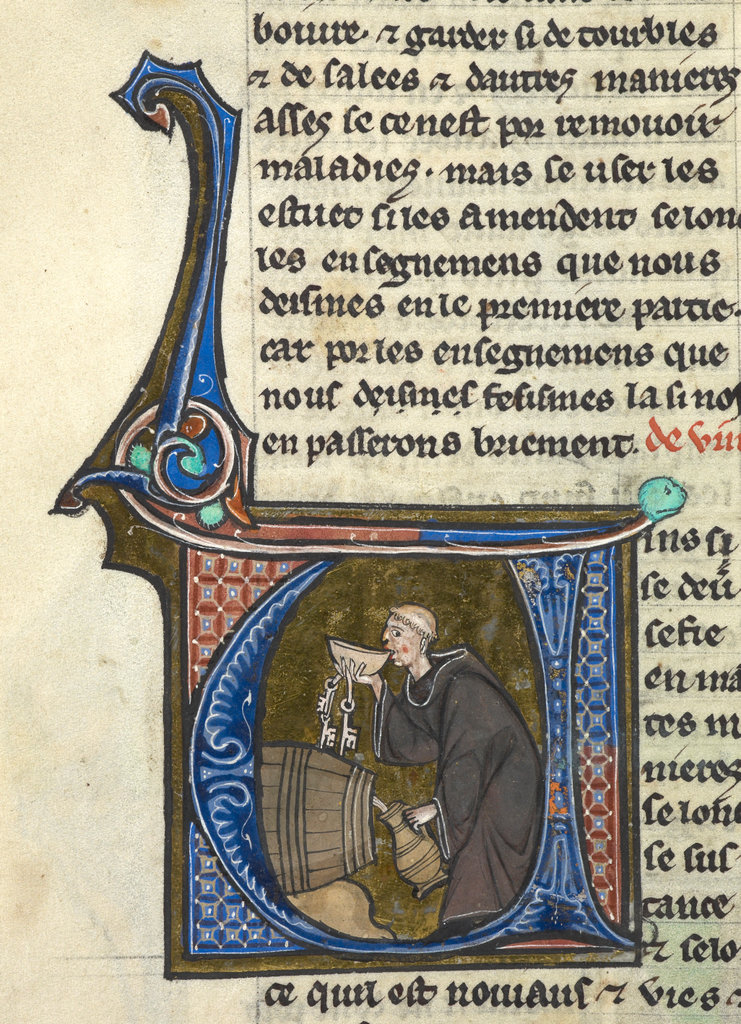 boiure. ⁊ garder si de tourbles
⁊ de salces ⁊ dautres manieres
asses se ce nest por remouoir
maladies. mais se user les
estuet si les amendent selonc
les ensegnemens que nous
desimes en le premiere partie.
car por les ensegnemens que
nous desimes fesismes la si nos
en passerons briement. de vin
ins si
se deui
sefie
en ma
tes m
nieres
selonc
se sus
tance
⁊ selo
ce quil est nouiaus ⁊ vies ⁊